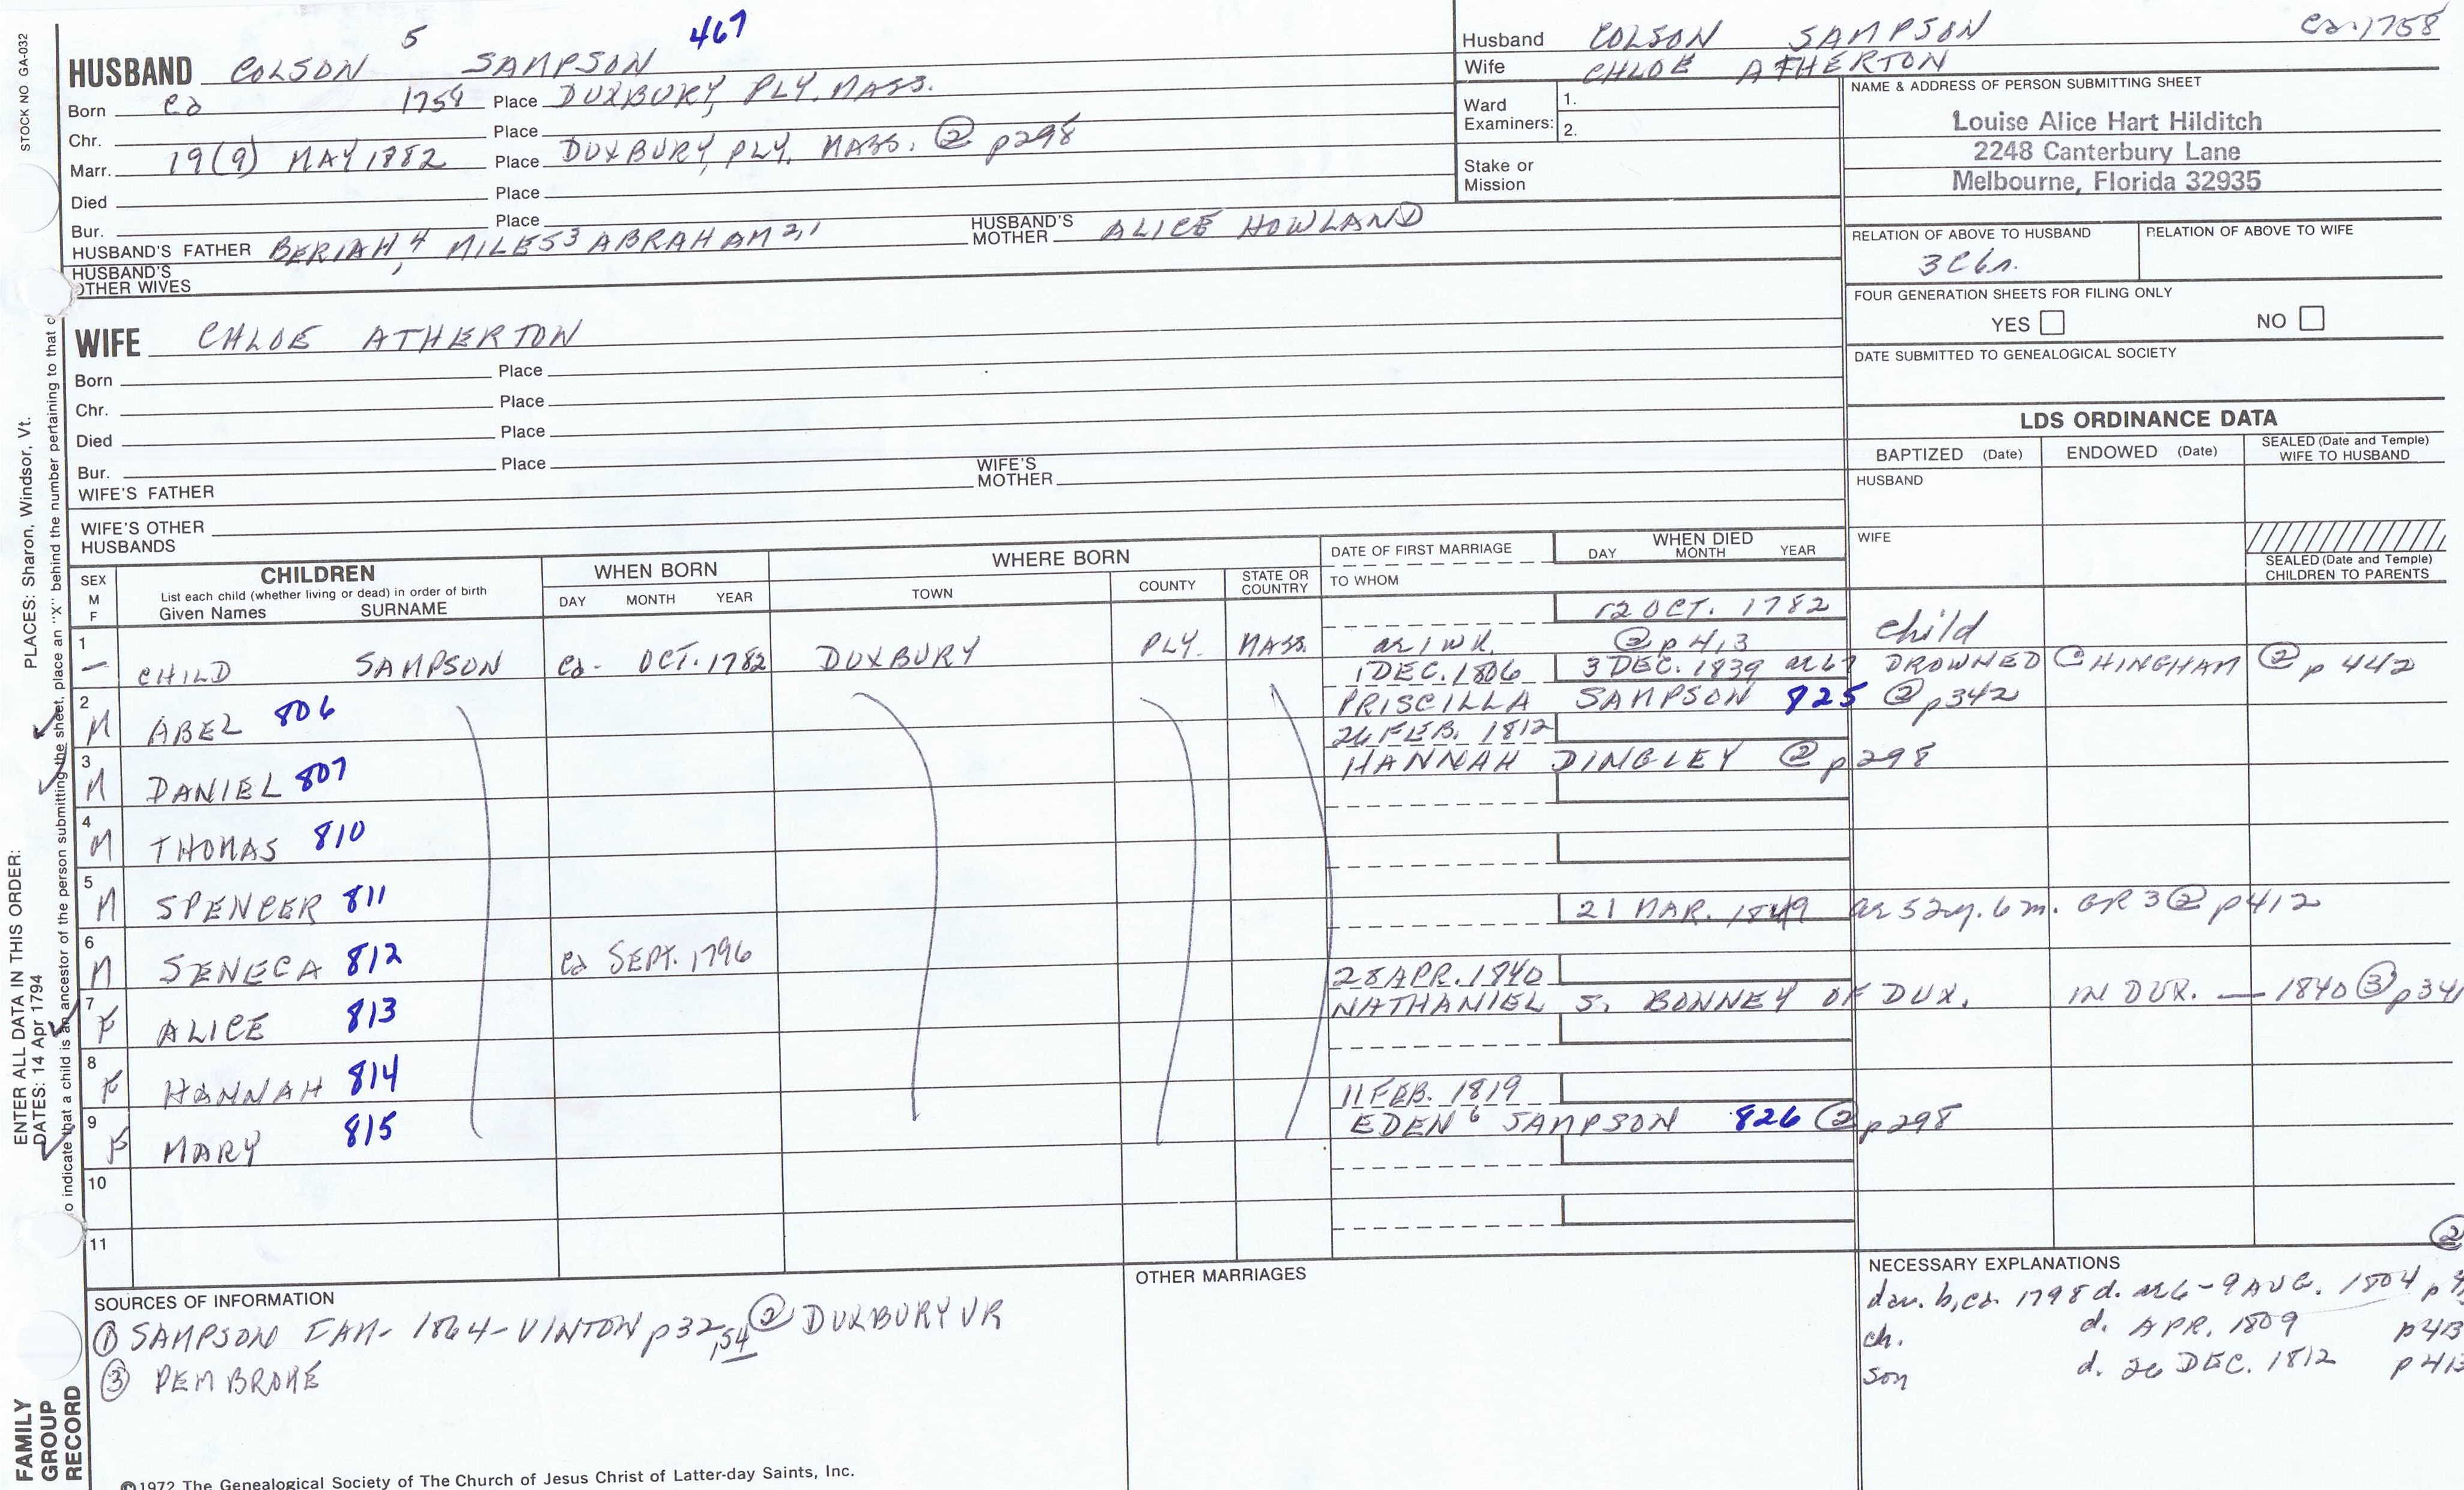 STOCK NO GA-032
PLACES: Sharon, Windsor, Vt.
ENTER ALL DATA IN THIS ORDER:
DATES: 14 Apr 1794
o indicate that a child is an ancestor of the person submitting the sheet, place an "X" behind the number pertaining to that c
FAMILY
GROUP
RECORD
5 467
HUSBAND COLSON SAMPSON
Born ca 1758 Place DUXBURY, PLY. MASS.
Chr. Place
Marr. 19(9) MAY 1882 Place DUXBURY, PLY. MASS. ② p298
Died Place
Bur. Place
HUSBAND'S FATHER BERIAH 4, MILES 3 ABRAHAM 2,1 HUSBAND'S MOTHER ALICE HOWLAND
HUSBAND'S
OTHER WIVES
Husband COLSON SAMPSON ca. 1758
Wife CHLOE ATHERTON
Ward
Examiners: 1.
2.
Stake or
Mission
NAME & ADDRESS OF PERSON SUBMITTING SHEET
Louise Alice Hart Hilditch
2248 Canterbury Lane
Melbourne, Florida 32935
RELATION OF ABOVE TO HUSBAND RELATION OF ABOVE TO WIFE
FOUR GENERATION SHEETS FOR FILING ONLY
YES NO
DATE SUBMITTED TO GENEALOGICAL SOCIETY
WIFE CHLOE ATHERTON
Born Place
Chr. Place
Died Place
Bur. Place
WIFE'S FATHER WIFE'S MOTHER
WIFE'S OTHER
HUSBANDS
LDS ORDINANCE DATA
BAPTIZED (Date) ENDOWED (Date) SEALED (Date and Temple) WIFE TO HUSBAND
HUSBAND
WIFE
SEALED (Date and Temple)
CHILDREN TO PARENTS
SEX M F
CHILDREN
List each child (whether living or dead) in order of birth
Given Names SURNAME
WHEN BORN
DAY MONTH YEAR
WHERE BORN
TOWN COUNTY STATE OR COUNTRY
DATE OF FIRST MARRIAGE
TO WHOM
WHEN DIED
DAY MONTH YEAR
12 OCT. 1782
1 — CHILD SAMPSON ca. OCT. 1782 DUXBURY PLY. MASS. ae 1 WK. ② p 413 child
1 DEC. 1806 3 DEC. 1839 ae 67 DROWNED @ HINGHAM ② p 442
2 M ABEL 806 PRISCILLA SAMPSON 825 ② p342
26 FEB. 1812
3 M DANIEL 807 HANNAH DINGLEY ② p298
4 M THOMAS 810
5 M SPENCER 811
21 MAR. 1849 ae 52y. 6m. GR 3 ② p412
6 M SENECA 812 ca SEPT. 1796
28 APR. 1840
7 F ALICE 813 NATHANIEL S. BONNEY OF DUX. IN DUX. — 1840 ③ p341
8 F HANNAH 814
11 FEB. 1819
9 F MARY 815 EDEN 6 SAMPSON 826 ② p298
10
11
SOURCES OF INFORMATION
① SAMPSON FAM- 1864- VINTON p32,54 ② DUXBURY VR
③ PEMBROKE
OTHER MARRIAGES
②
NECESSARY EXPLANATIONS
dau. b, ca. 1798 d. ae 6 - 9 AUG. 1804
ch. d. APR. 1809 p413
son d. 26 DEC. 1812
©1972 The Genealogical Society of The Church of Jesus Christ of Latter-day Saints, Inc.